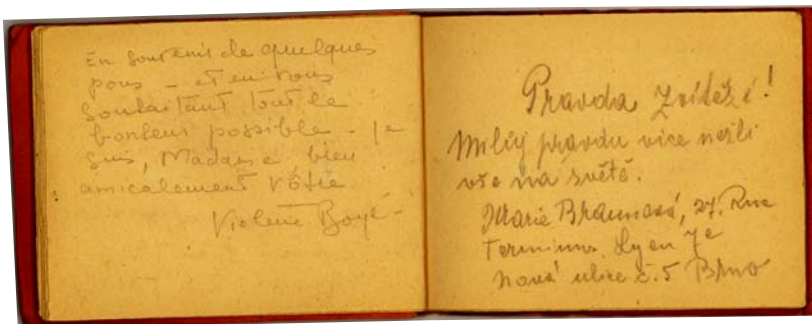 En souvenir de quelques
pous - et en vous
souhaitant tout le
bonheur possible - je
suis, Madame bien
amicalement vôtre
Violette Boyé -
Pravda zvítězí!
Miluj pravdu více nežli
vše na světě.
Marie Braunová, 27. Rue
Terminus Lyon 7e
Nová ulice č. 5 Brno